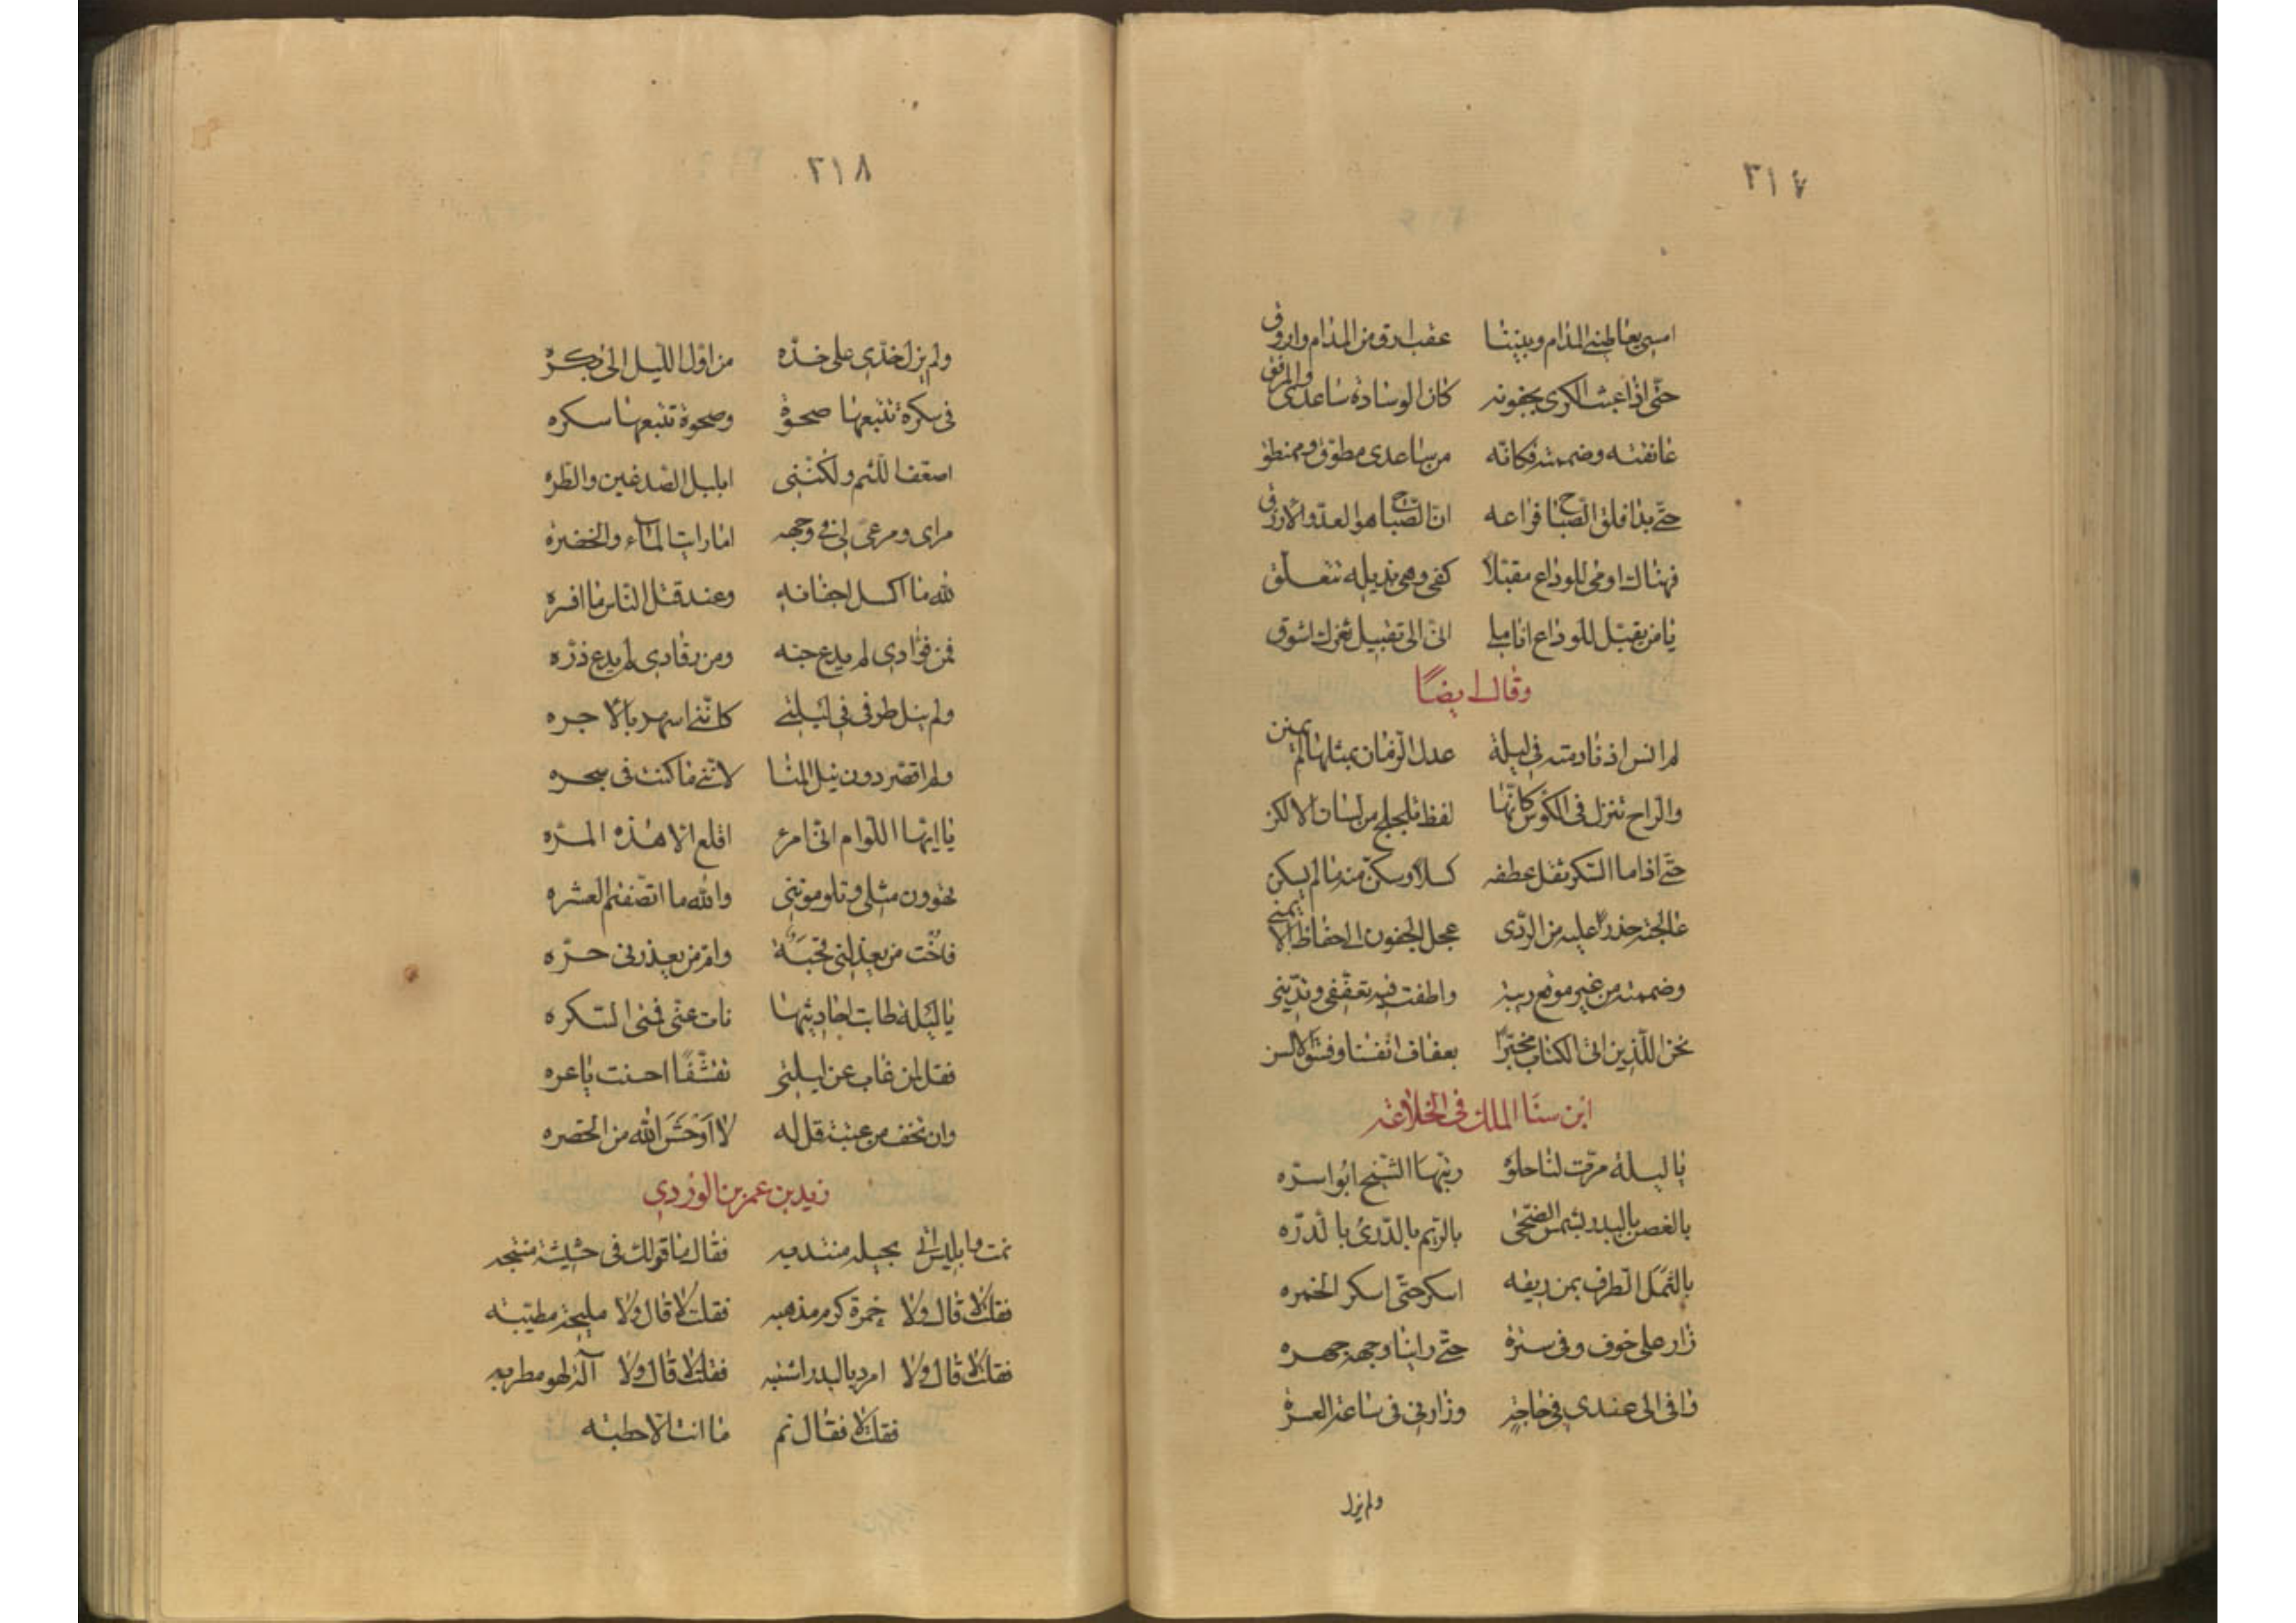 ٣١٧
امسى يعاطينى المدام وبيننا عتب ارق من المدام واروق
حتى اذا عبث الكرى بجفونه كان الوسادة ساعدى والمرفق
عانقته وضممته فكانه من ساعدى مطوق وممنطق
حتى بدا فلق الصباح فراعه ان الصباح هو العدو الازرق
فهناك اومى للوداع مقبلا كفى وهى بذيله تتعلق
يا من يقبل للوداع اناملى انى الى تقبيل ثغرك اشوق
وقال ايضا
لم انس اذ نادمته فى ليلة عدل الزمان بمثلها لم يمنن
والراح تنزل فى الكؤس كانها لفظ تلجلج من لسان الالكن
حتى اذا ما السكر ثقل عطفه كسلا وسكن منه ما لم يسكن
عالجته حذرا عليه من الردى عجل الجفون الى حفاظ الايمن
وضممته من غير موضع ريبة واطفت فيه تعففى وتدينى
نحن الذين اتى الكتاب مخبرا بعفاف انفسنا وفسق الالسن
ابن سنا الملك فى الخلاعة
يا ليلة مرت لنا حلوة ربتها الشيخ ابو اسره
بالغصن بالبدر بشمس الضحى بالريم بالدرى بالدره
بالثمل الطرف بمن ريقه اسكر حتى اسكر الخمره
زار على خوف وفى سترة حتى راينا وجهه جهره
وافى الى عندى فى حاجة وزارنى فى ساعة العسره
ولم يزل
٣١٨
ولم يزل خدى على خده من اول الليل الى بكره
فى سكرة تتبعها صحوة وصحوة تتبعها سكره
اضعف اللثم ولكننى ابلبل الصدغين والطره
مراى ومرعى لى فى وجهه امارات الماء والخضره
لله ما اكسل اجفانه وعند قتل الناس ما افره
فمن فؤادى لم يدع حبه ومن رقادى لم يدع ذره
ولم ينل طرفى فى ليلتى كاننى اسهر بالاجره
ولم اقصر دون نيل المنا لاننى ما كنت فى سحره
يا ايها اللوام انى امرء اقلع الا هذه المره
تهوون مثلى وتلومونني والله ما انصفتم العشره
فاخت من يعذلنى قحبة وام من يعذرنى حره
يا ليلة طابت احاديثها نات عنى فنى السكره
فقل لمن غاب عن ليلتى نفشفا احسنت يا عره
وان تخف من عينه قل له لا اوحش الله من الحضره
زيد بن عمر بن الوردى
نمت وابليس اتى بحيلة منتدبه فقال ما قولك فى حشيشة منتجه
فقلت لا قال ولا خمرة كرم مذهبه فقلت لا قال ولا مليحة مطيبه
فقلت لا قال ولا امرد بالبدر اشتبه فقلت لا قال ولا آلة لهو مطربه
فقلت لا فقال نم ما انت الا حطبه